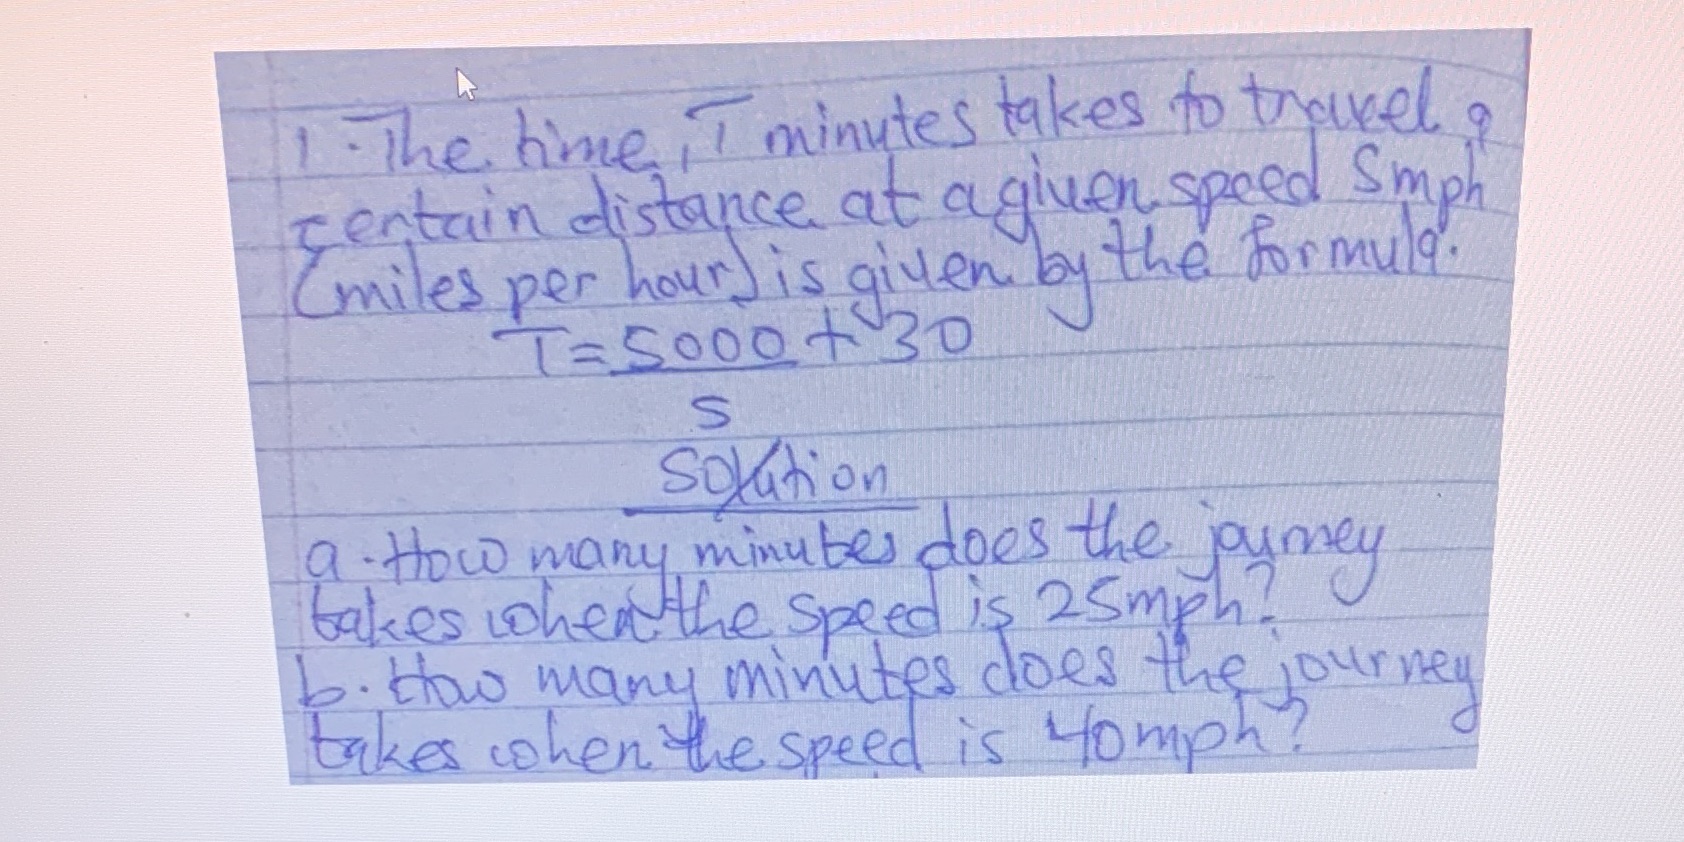 1. The time, T minutes takes to travel a
certain distance at a given speed Smph
(miles per hour) is given by the formula.
T = 5000 + 30
S
Solution
a. How many minutes does the journey
takes when the speed is 25mph?
b. How many minutes does the journey
takes when the speed is 40mph?